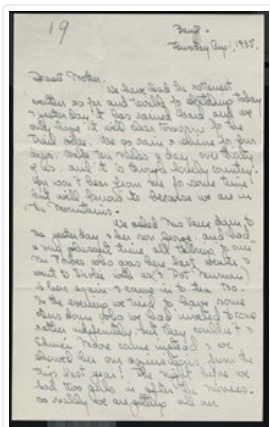 19
Banff.
Thursday Aug 1, 1935.
Dearest Mother.
We have had the rottenest
weather so far and terribly for sketching today
& yesterday it has rained hard and we
only hope it will clear tomorrow for the
trail ride. We go Sam & Serene for four
days. Only ten miles a day over thirty
of us. and it is through lovely country.
You won't hear from me for some time
but will know its because we are in
the Mountains.
We asked Mrs Vaux down to
tea yesterday & her son George. and had
a very pleasant time all talking to one
Mr Forbes who was here last winter &
went to Skokie with us & Dot Numan
is here again & came in to tea too.
In the evening we tried to have some
others down who we had invited to come
rather indefinitely but they couldn't &
Edmée Moore came instead & we
showed her our acquisitions from the
trip last year! The night before we
had two girls in after the movies.
so really we are getting all our